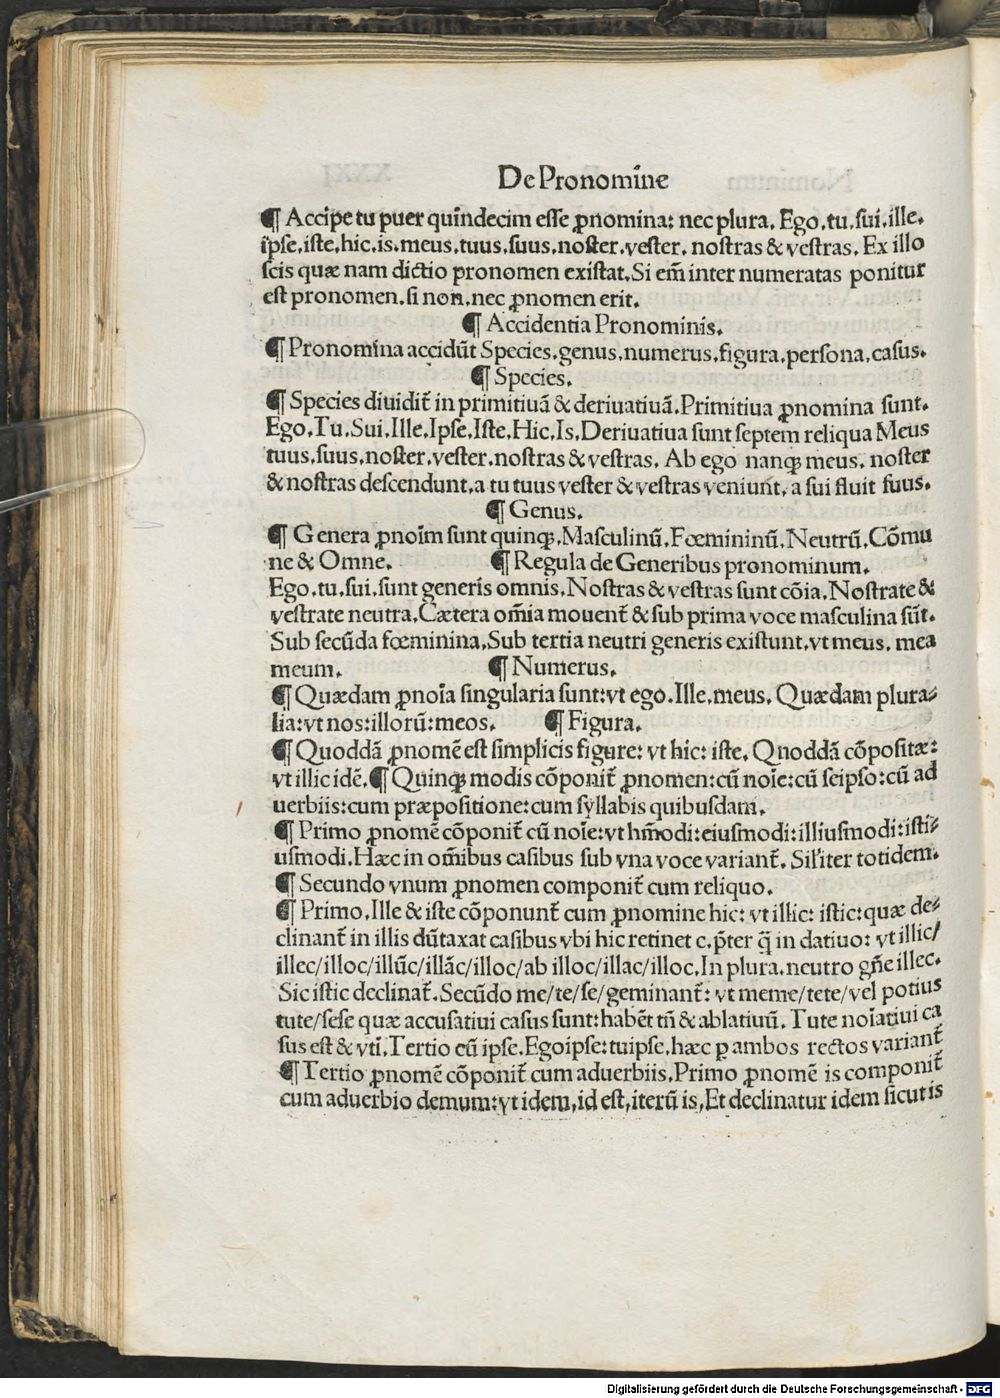 De Pronomine
¶ Accipe tu puer quindecim esse ꝓnomina: nec plura. Ego.tu.sui.ille.
ipse.iste.hic.is.meus.tuus.suus.noster.vester. nostras & vestras. Ex illo
scis quæ nam dictio pronomen existat.Si em̄ inter numeratas ponitur
est pronomen.si non.nec ꝓnomen erit.
¶ Accidentia Pronominis.
¶ Pronomina accidūt Species.genus.numerus.figura.persona.casus.
¶ Species.
¶ Species diuidit̄ in primitiuā & deriuatiuā.Primitiua ꝓnomina sunt.
Ego.Tu.Sui.Ille.Ipse.Iste.Hic.Is.Deriuatiua sunt septem reliqua Meus
tuus.suus.noster.vester.nostras & vestras. Ab ego nanqꝫ meus. noster
& nostras descendunt.a tu tuus vester & vestras veniunt. a sui fluit suus.
¶ Genus.
¶ Genera ꝓnoīm sunt quinqꝫ.Masculinū.Fœmininū.Neutrū.Cōmu
ne & Omne. ¶ Regula de Generibus pronominum.
Ego.tu.sui.sunt generis omnis.Nostras & vestras sunt cōia.Nostrate &
vestrate neutra.Cætera om̄ia mouent̄ & sub prima voce masculina sūt.
Sub secūda fœminina.Sub tertia neutri generis existunt.vt meus. mea
meum. ¶ Numerus.
¶ Quædam ꝓnoīa singularia sunt:vt ego.Ille.meus. Quædam plura⸗
lia:vt nos:illorū:meos. ¶ Figura.
¶ Quoddā ꝓnomē est simplicis figure: vt hic: iste. Quoddā cōpositæ:
vt illic idē.¶ Quinqꝫ modis cōponit̄ ꝓnomen:cū noīe:cū seipso:cū ad
uerbiis:cum præpositione:cum syllabis quibusdam.
¶ Primo ꝓnomē cōponit̄ cū noīe:vt hm̄odi:eiusmodi:illiusmodi:isti⸗
usmodi.Hæc in om̄ibus casibus sub vna voce variant̄. Siliter totidem.
¶ Secundo vnum ꝓnomen componit̄ cum reliquo.
¶ Primo.Ille & iste cōponunt̄ cum ꝓnomine hic: vt illic: istic:quæ de⸗
clinant̄ in illis dūtaxat casibus vbi hic retinet c.p̄ter q̄ in datiuo: vt illic/
illec/illoc/illūc/illāc/illoc/ab illoc/illac/illoc.In plura.neutro gn̄e illec.
Sic istic declinat̄.Secūdo me/te/se/geminant̄: vt meme/tete/vel potius
tute/sese quæ accusatiui casus sunt:habēt tn̄ & ablatiuū. Tute noīatiui ca
sus est & vti̇.Tertio cū ipse.Egoipse:tuipse.hæc ꝑ ambos rectos variant̄
¶ Tertio ꝓnomē cōponit̄ cum aduerbiis.Primo ꝓnomē is componit̄
cum aduerbio demum:vt idem.id est.iterū is.Et declinatur idem sicut is
Digitalisierung gefördert durch die Deutsche Forschungsgemeinschaft - DFG